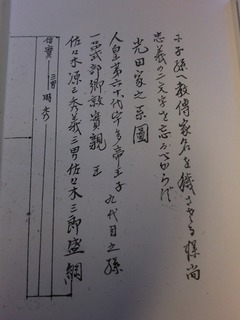 子子孫へ教傳家名を穢さゞる様尚
忠義の二文字を忘るべからず
光田家之系圖
人皇第六十代宇多帝王子 九代目之孫
一品式部卿敦實親王
佐々木源三秀義三男佐々木三郎盛綱
信實 三男 明秀